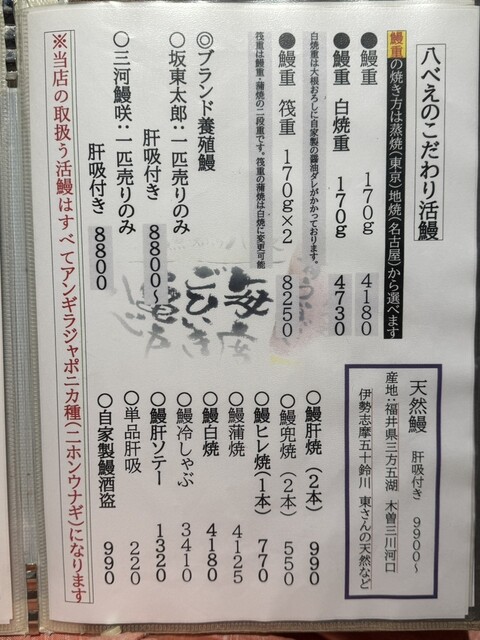 八べえのこだわり活鰻
鰻重の焼き方は蒸焼(東京)地焼(名古屋)から選べます
●鰻重 170g 4180
●鰻重 白焼重 170g 4730
白焼重は大根おろしに自家製の醤油ダレがかかっております。
●鰻重 筏重 170g×2 8250
筏重は鰻重・蒲焼の二段重です。筏重の蒲焼は白焼に変更可能
◎ブランド養殖鰻
○坂東太郎:一匹売りのみ
肝吸付き 8800~
○三河鰻咲:一匹売りのみ
肝吸付き 8800
天然鰻 肝吸付き 9900~
産地:福井県三方五湖 木曽三川河口
伊勢志摩五十鈴川 東さんの天然など
○鰻肝焼(2本) 990
○鰻兜焼(2本) 550
○鰻ヒレ焼(1本) 770
○鰻蒲焼 4125
○鰻白焼 4180
○鰻冷しゃぶ 3410
○鰻肝ソテー 1320
○単品肝吸 220
○自家製鰻酒盗 990
※当店の取扱う活鰻はすべてアンギラジャポニカ種(ニホンウナギ)になります